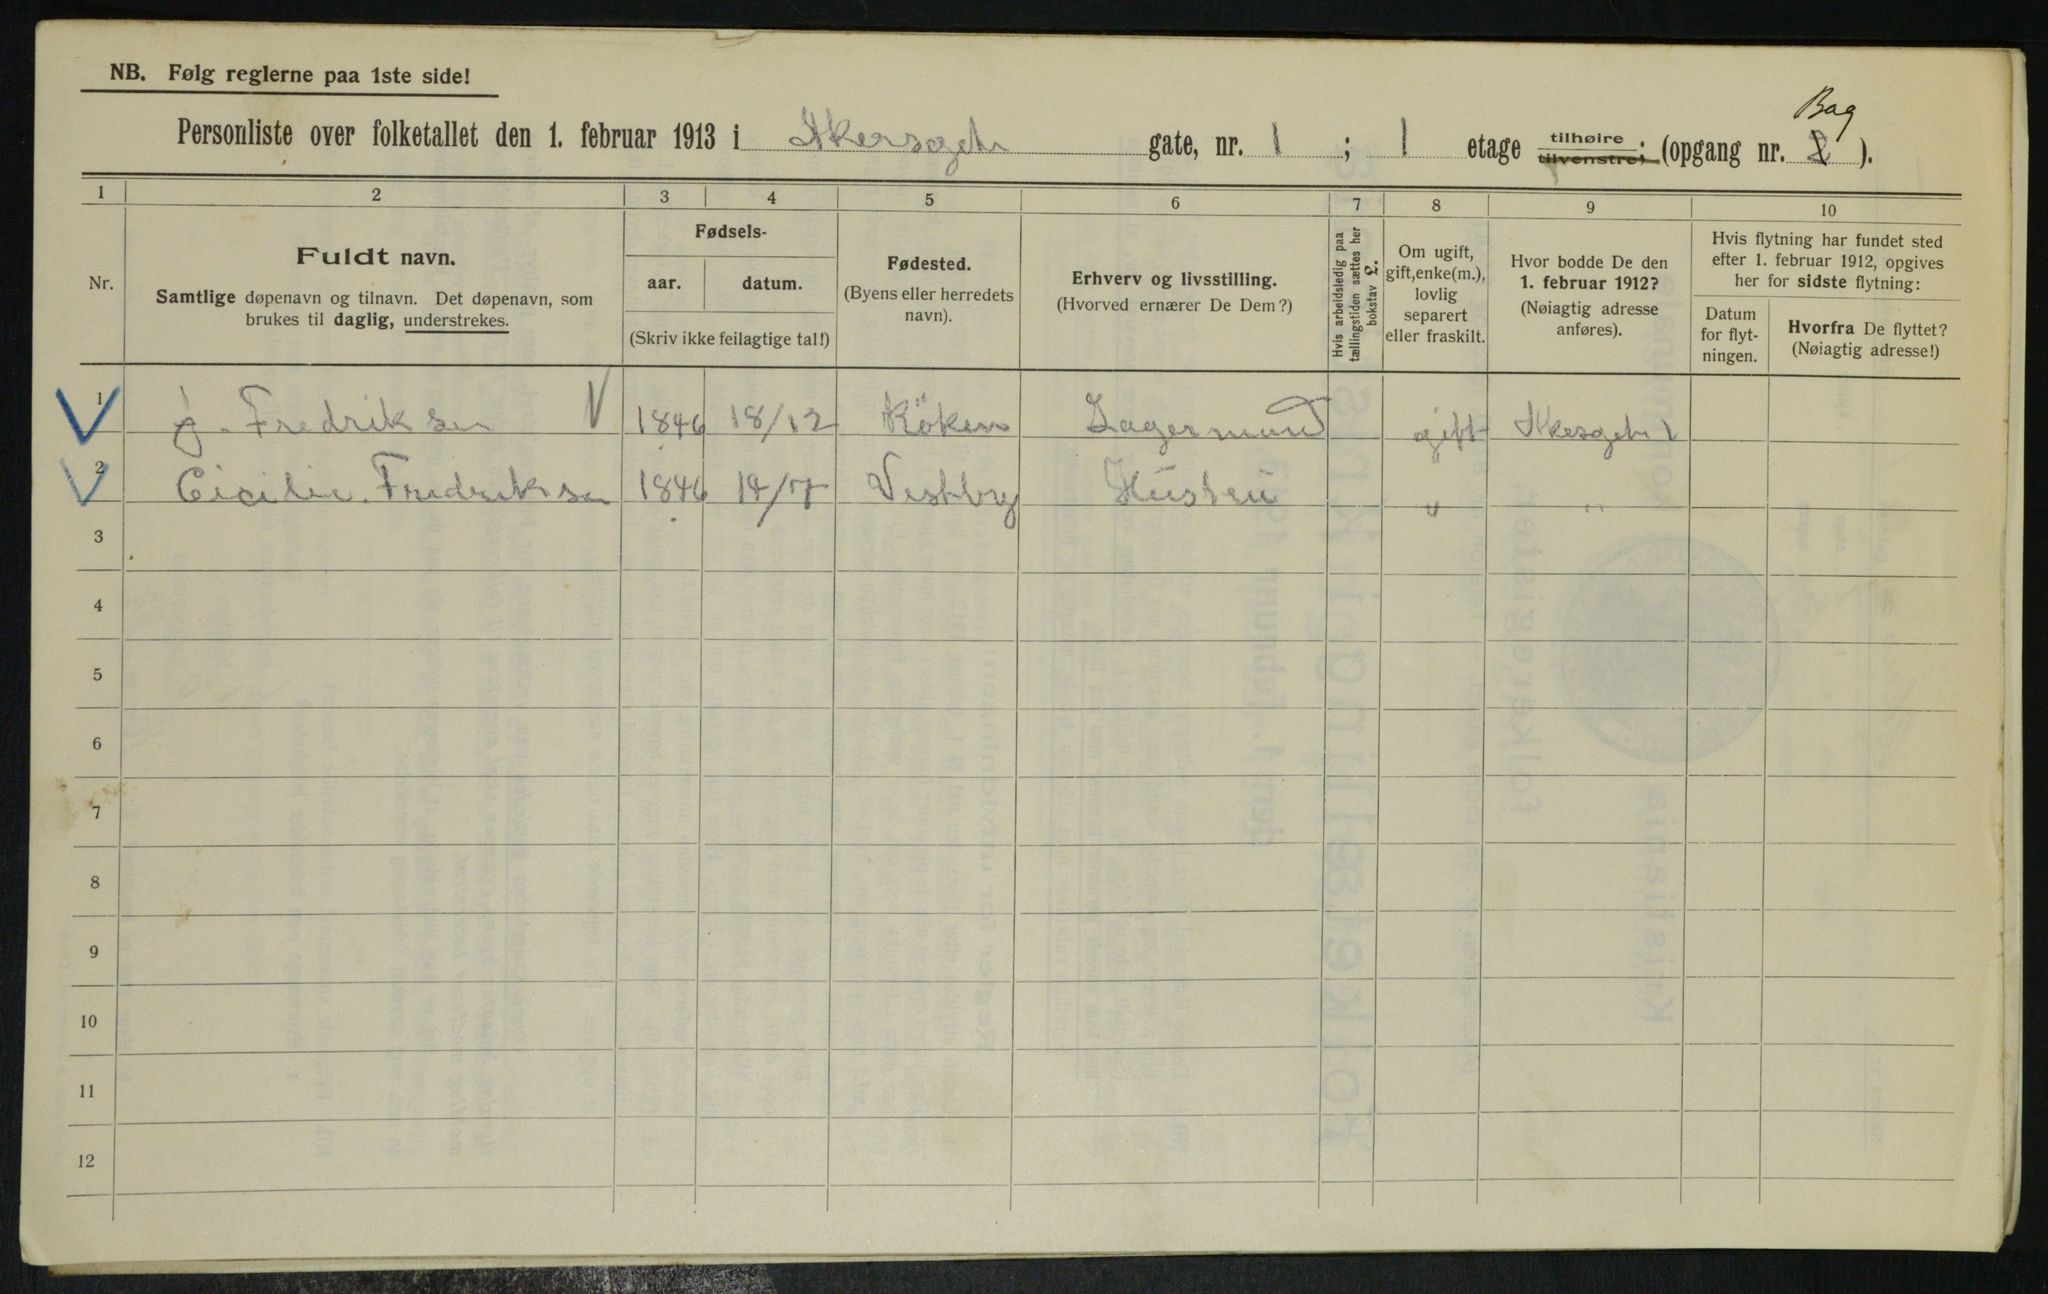 NB. Følg reglerne paa 1ste side!
Bag
Personliste over folketallet den 1. februar 1913 i Akersgetn gate, nr. 1 ; 1 etage tilhøire tilvenstre; (opgang nr. 2 ).
1 2 3 4 5 6 7 8 9 10
Nr.
Fuldt navn.
Samtlige døpenavn og tilnavn. Det døpenavn, som
brukes til daglig, understrekes.
Fødsels-
aar. datum.
(Skriv ikke feilagtige tal!)
Fødested.
(Byens eller herredets
navn).
Erhverv og livsstilling.
(Hvorved ernærer De Dem?)
Hvis arbeidsledig paa
tællingstiden sættes her
bokstav L.
Om ugift,
gift, enke(m.),
lovlig
separert
eller fraskilt.
Hvor bodde De den
1. februar 1912?
(Nøiagtig adresse
anføres).
Hvis flytning har fundet sted
efter 1. februar 1912, opgives
her for sidste flytning:
Datum
for flyt-
ningen.
Hvorfra De flyttet?
(Nøiagtig adresse!)
1 J. Fredriksen 1846 18/12 Röken Lagermand gift Akesgetn 1
2 Cicilie. Fredriksen 1846 14/7 Vestby Hustru " "
3
4
5
6
7
8
9
10
11
12